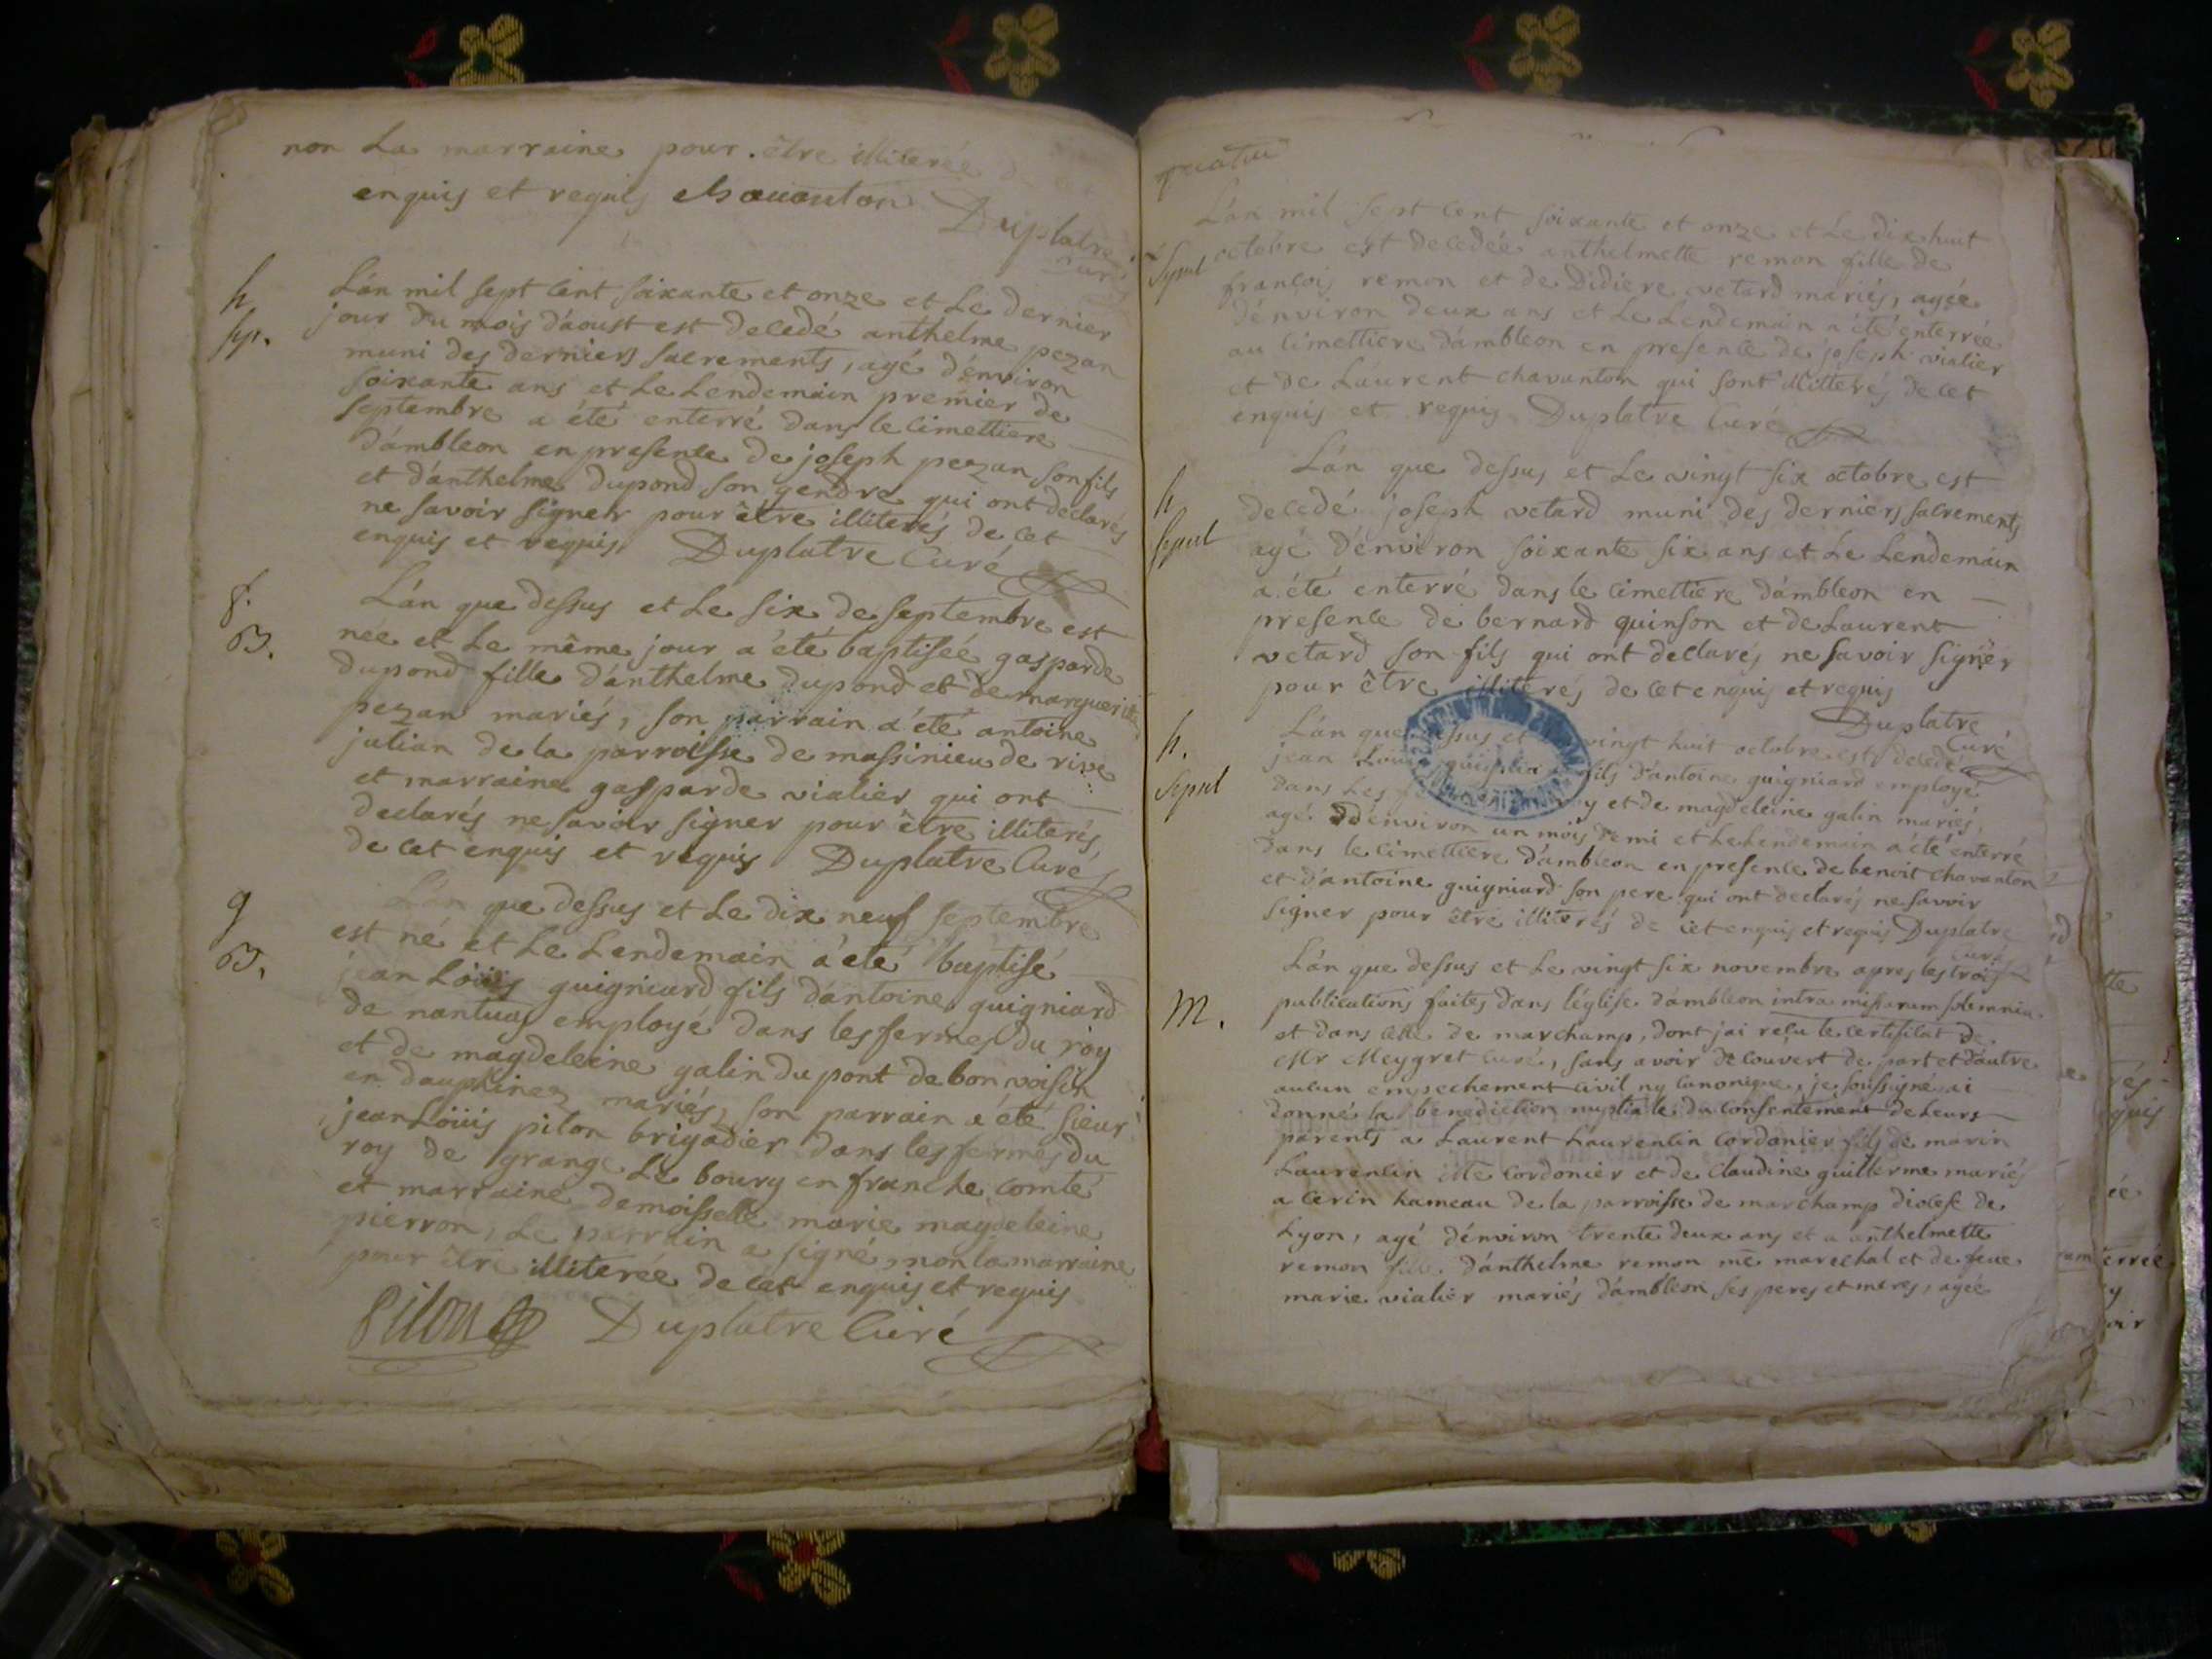 non La marraine pour être illiterée de cet
enquis et requis Chavanton
Duplatre
Curé
h
sp.
L'an mil sept cent soixante et onze et Le dernier
jour du mois d'aoust est decedé anthelme pezan
muni des derniers sacrements, agé d'environ
soixante ans et Le Lendemain premier de
septembre a été enterré dans le cimettiere
d'ambleon en presence de joseph pezan son fils
et d'anthelme dupond son gendre qui ont declarés
ne savoir signer pour être illiterés de cet
enquis et requis Duplatre Curé
f.
B.
L'an que dessus et Le six de septembre est
née et Le même jour a été baptisée gasparde
dupond fille d'anthelme dupond et de marguerite
pezan mariés, son parrain a été antoine
julian de la parroisse de massinieu de rive
et marraine gasparde vialier qui ont
declarés ne savoir signer pour être illiterés
de cet enquis et requis Duplatre Curé
g
B.
L'an que dessus et Le dix neuf septembre
est né et Le Lendemain a été baptisé
jean Loüis guigniard fils d'antoine guigniard
de nantua employé dans les fermes du roy
et de magdeleine galin du pont de bon voisin
en dauphinez mariés, son parrain a été sieur
jean Loüis pilon brigadier dans les fermes du
roy de grange Le bourg en franche comté
et marraine demoisselle marie magdeleine
pierron, Le parrain a signé, non la marraine
pour être illiterée de cet enquis et requis
Pilon Duplatre Curé
quatre
Sepul
L'an mil sept cent soixante et onze et Le dix huit
octobre est decedée anthelmette remon fille de
françois remon et de Didiere vetard mariés, agée
d'environ deux ans et Le Lendemain a été enterrée
au cimettiere d'ambleon en presence de joseph vialier
et de Laurent chavanton qui sont illitterés de cet
enquis et requis Duplatre Curé
h
Sepul
L'an que dessus et Le vingt six octobre est
decedé joseph vetard muni des derniers sacrements
agé d'environ soixante six ans et Le Lendemain
a été enterré dans le cimettiere d'ambleon en
presence de bernard quinson et de Laurent
vetard son fils qui ont declarés ne savoir signer
pour être illiterés de cet enquis et requis
Duplatre
Curé
h.
Sepul
L'an que dessus et vingt huit octobre est decedé
jean Loüis fils d'antoine guigniard employé
dans Les y et de magdeleine galin mariés,
agé d'environ un mois demi et Le Lendemain a été enterré
dans le cimettiere d'ambleon en presence de benoit chavanton
et d'antoine guigniard son pere qui ont declarés ne savoir
signer pour être illiterés de cet enquis et requis Duplatre
Curé
M.
L'an que dessus et Le vingt six novembre apres les trois
publications faites dans l'église d'ambleon intra missarum solemnia
et dans celle de marchamp, dont j'ai reçu le certificat de
Mr Meygret curé, sans avoir decouvert de part et d'autre
aucun empechement civil ny canonique, je soussigné ai
donné la benediction nuptiale du consentement de Leurs
parents a Laurent Laurencin cordonier fils de marin
Laurencin cordonier et de Claudine guillerme mariés
a Cerin hameau de la parroisse de marchamp diocese de
Lyon, agé d'environ trente deux ans et a anthelmette
remon fille d'anthelme remon me marechal et de feue
marie vialier mariés d'ambleon ses peres et meres, agée